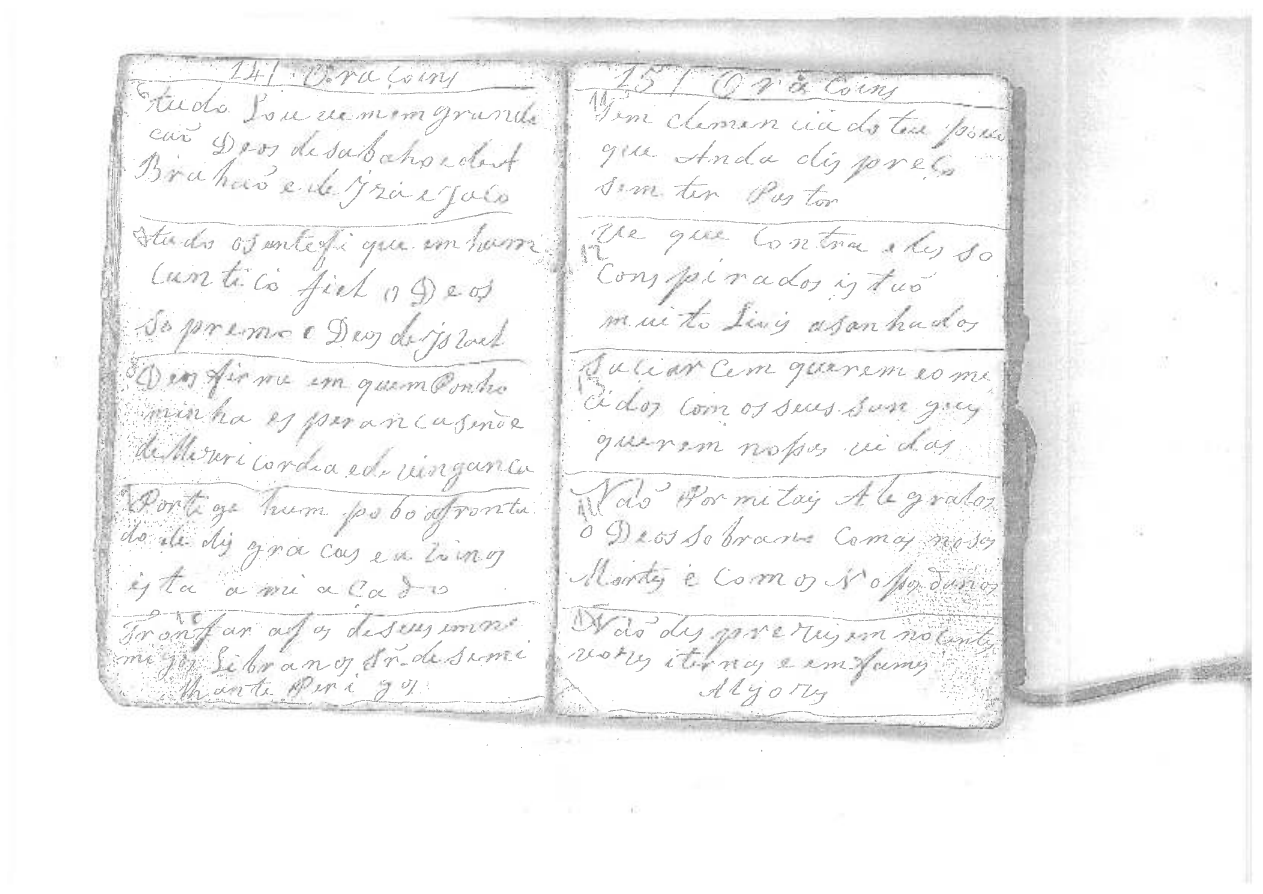 141 Oracoins
6 tudo Louvem em grande
caõ Deos de sabaho e de A
Brahaõ e de Jza e Jaco
7 tudo o santefique em hum
Cantico fiel o Deos
Sopremo e Deos de jsrael
8 Deos firme em quem Ponho
minha esperanca senõe
de Mizuricordia e de vinganca
9 Portige hum pobo afronta
do de disgracas e
ista amiacado
10 Tronfar a fos de seus emne
migos Libranos Sr. de semi
lhante Perigos
151 Oracoins
11 Tem clemencia do teu povo
que Anda dispreso
sem ter Pastor
12 Ve que Contra eles so
Conspirados istaõ
muito Liois asanhados
13 Saciarcem querem eome
cidos com os seus sangues
querem nosas vidas
14 Naõ Pormitais Alegralos
o Deos sobrano Comas nosas
Mortes e Comos Nosos danos
15 Naõ disprezeis em nocentes
vozes iternas e emfames
Aljozes